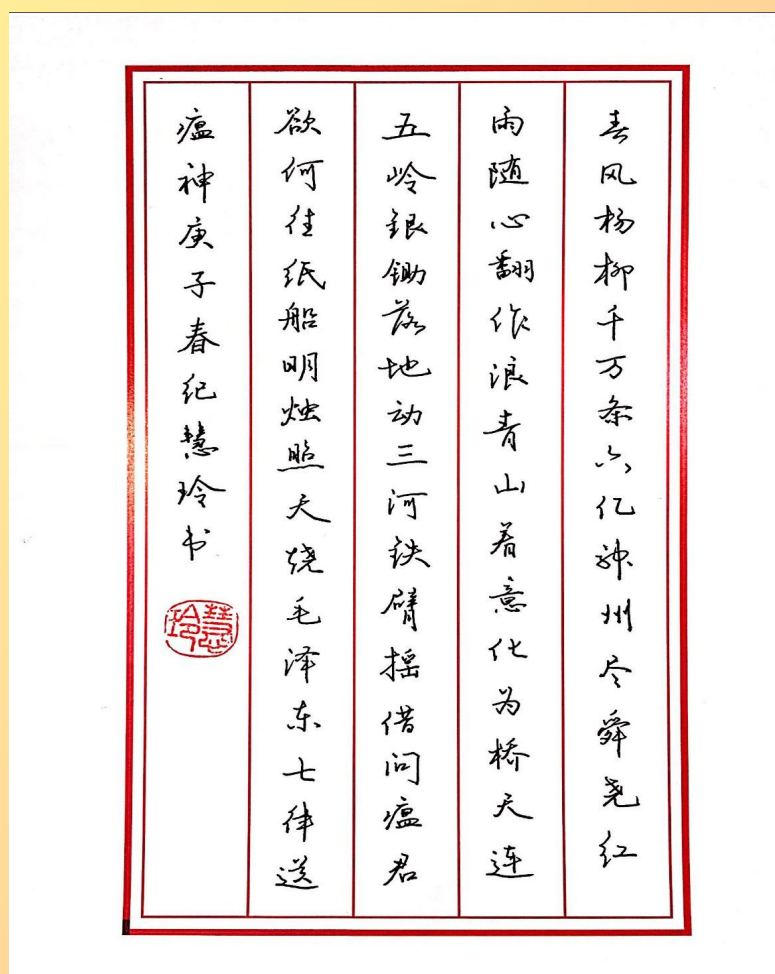 春风杨柳千万条六亿神州尽舜尧红
雨随心翻作浪青山着意化为桥天连
五岭银锄落地动三河铁臂摇借问瘟君
欲何往纸船明烛照天烧毛泽东七律送
瘟神庚子春纪慧玲书
慧玲